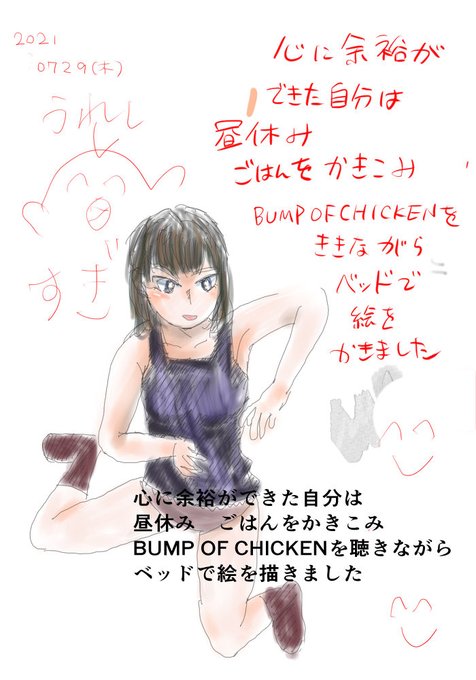 2021
0729(木)
うれし
すぎ
心に余裕が
できた自分は
昼休み
ごはんをかきこみ
BUMP OF CHICKENを
ききながら
ベッドで
絵を
かきました
心に余裕ができた自分は
昼休み　ごはんをかきこみ
BUMP OF CHICKENを聴きながら
ベッドで絵を描きました